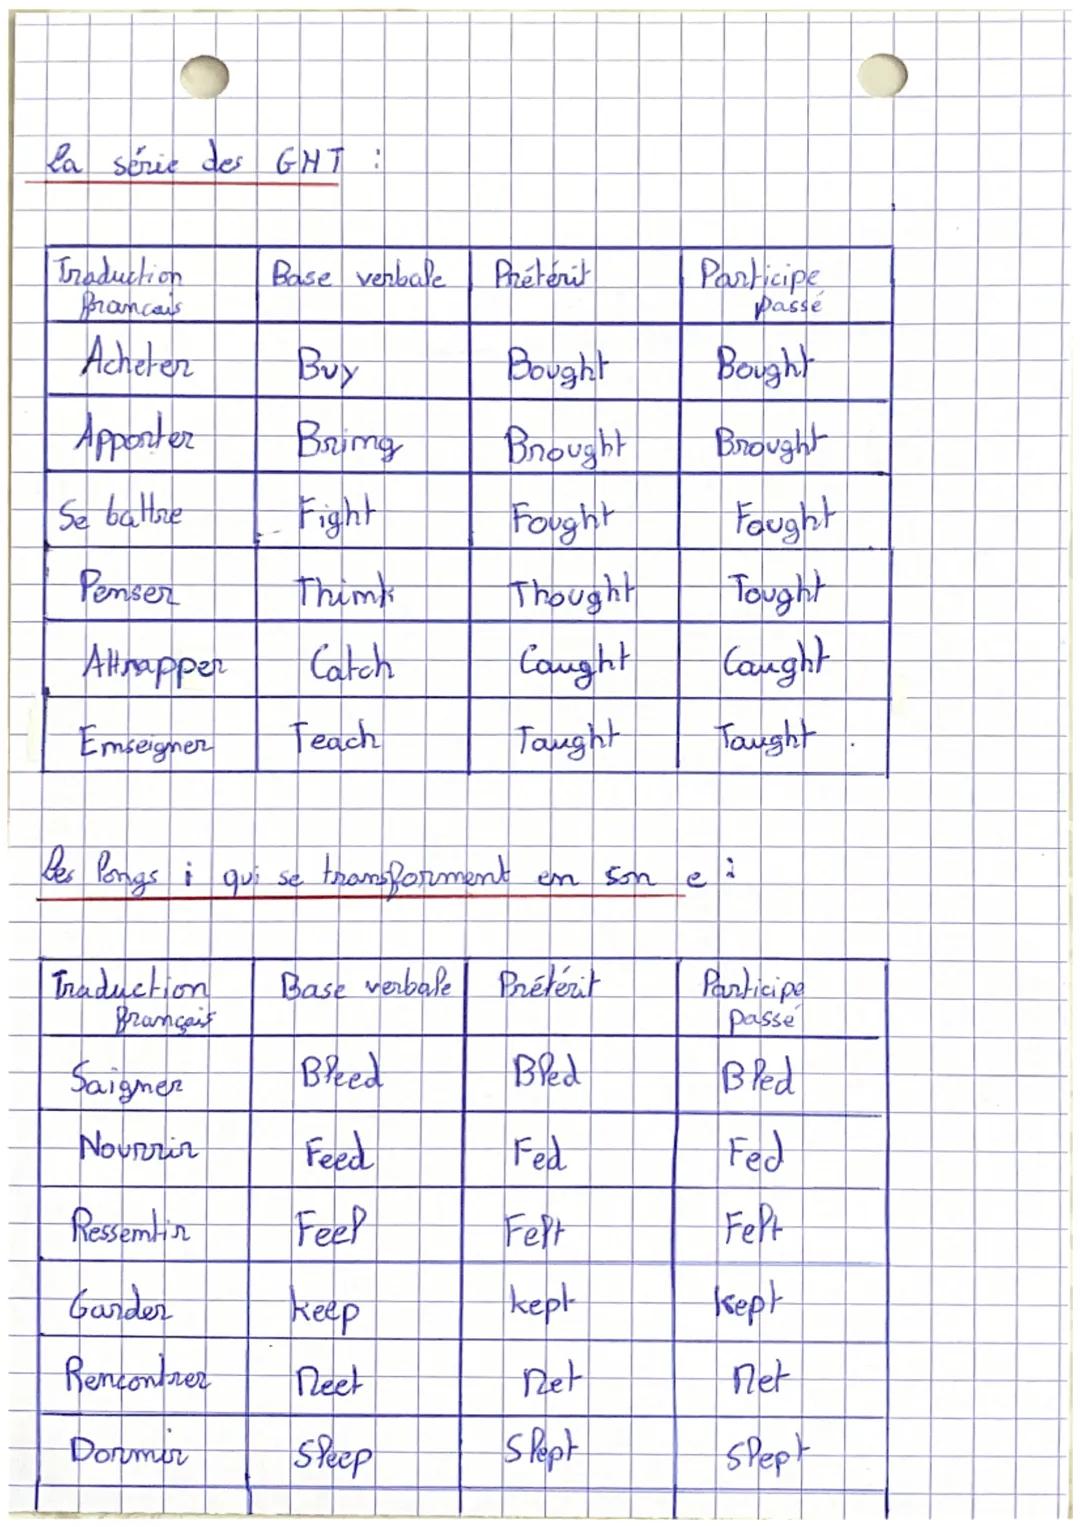 la série des GHT :
Traduction français Base verbale Prétérit Participe passé
Acheter Buy Bought Bought
Apporter Bring Brought Brought
Se battre Fight Fought Fought
Penser Think Thought Tought
Attrapper Catch Caught Caught
Enseigner Teach Taught Taught
les longs i qui se transforment en son e :
Traduction français Base verbale Prétérit Participe passé
Saigner Bleed Bled Bled
Nourrir Feed Fed Fed
Ressentir Feel Felt Felt
Garder keep kept kept
Rencontrer Meet Met Met
Dormir Sleep Slept Slept